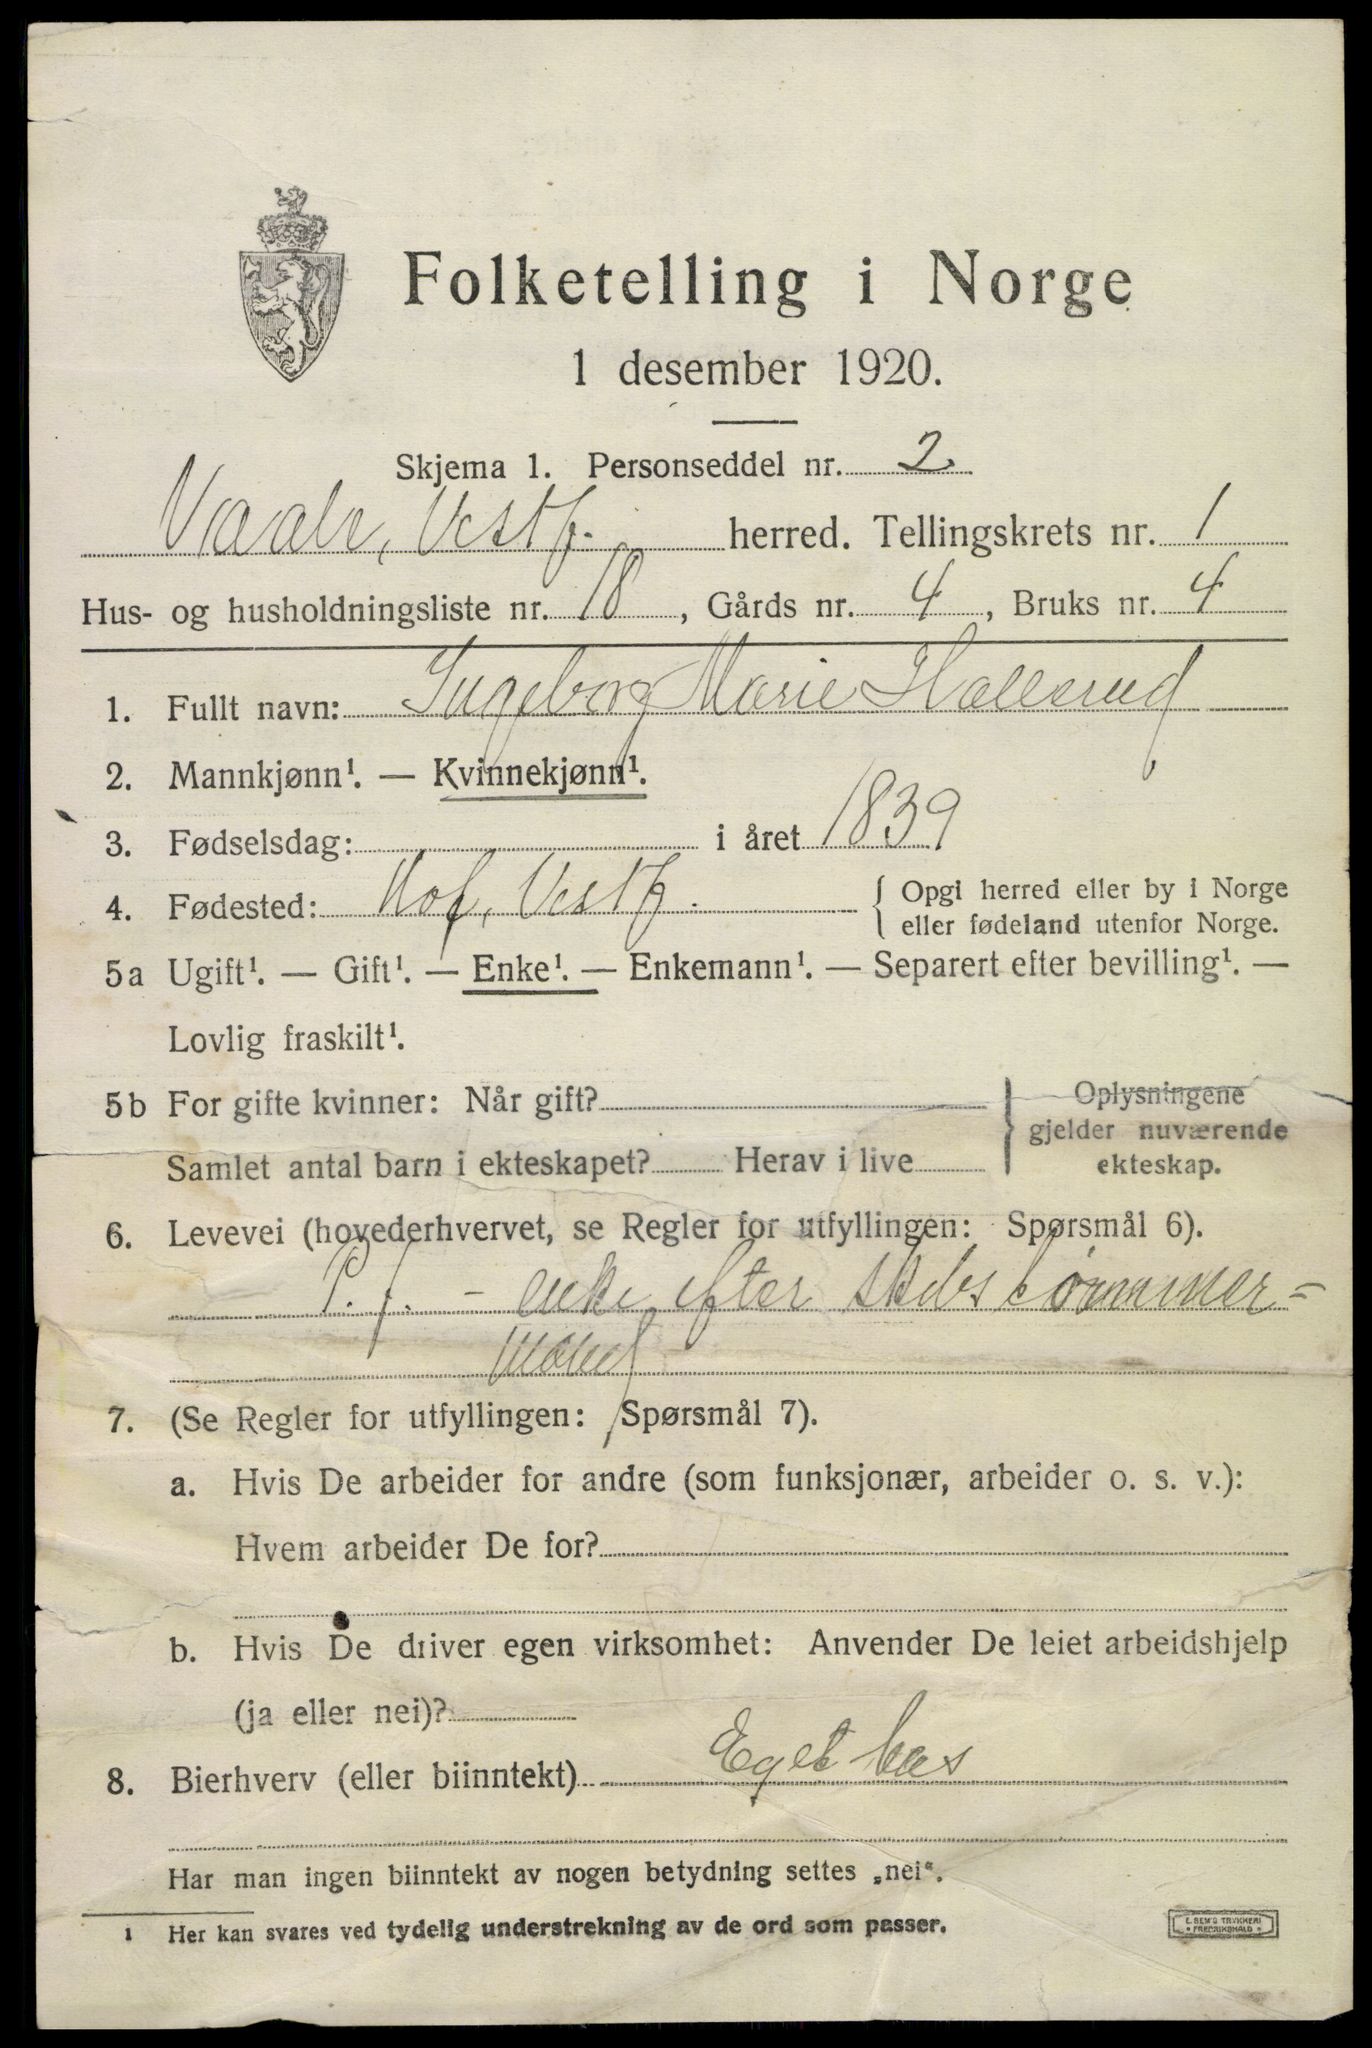 Folketelling i Norge
1 desember 1920.
Skjema 1. Personseddel nr. 2
Vaale, Vestf. herred. Tellingskrets nr. 1
Hus- og husholdningsliste nr. 18, Gårds nr. 4, Bruks nr. 4
1. Fullt navn: Ingeborg Marie Hallerud
2. Mannkjønn¹. — Kvinnekjønn¹.
3. Fødselsdag: i året 1839
4. Fødested: Hof, Vestf. { Opgi herred eller by i Norge
eller fødeland utenfor Norge.
5a Ugift¹. — Gift¹. — Enke¹. — Enkemann¹. — Separert efter bevilling¹. —
Lovlig fraskilt¹.
5b For gifte kvinner: Når gift? } Oplysningene
gjelder nuværende
Samlet antal barn i ekteskapet? Herav i live
ekteskap.
6. Levevei (hovederhvervet, se Regler for utfyllingen: Spørsmål 6).
P. f. - enke efter skibstømmer=
mand
7. (Se Regler for utfyllingen: Spørsmål 7).
a. Hvis De arbeider for andre (som funksjonær, arbeider o. s. v.):
Hvem arbeider De for?
b. Hvis De driver egen virksomhet: Anvender De leiet arbeidshjelp
(ja eller nei)?
8. Bierhverv (eller biinntekt) Eget hus
Har man ingen biinntekt av nogen betydning settes „nei“.
1 Her kan svares ved tydelig understrekning av de ord som passer.
E. SEM'S TRYKKERI
• FREDRIKSHALD •